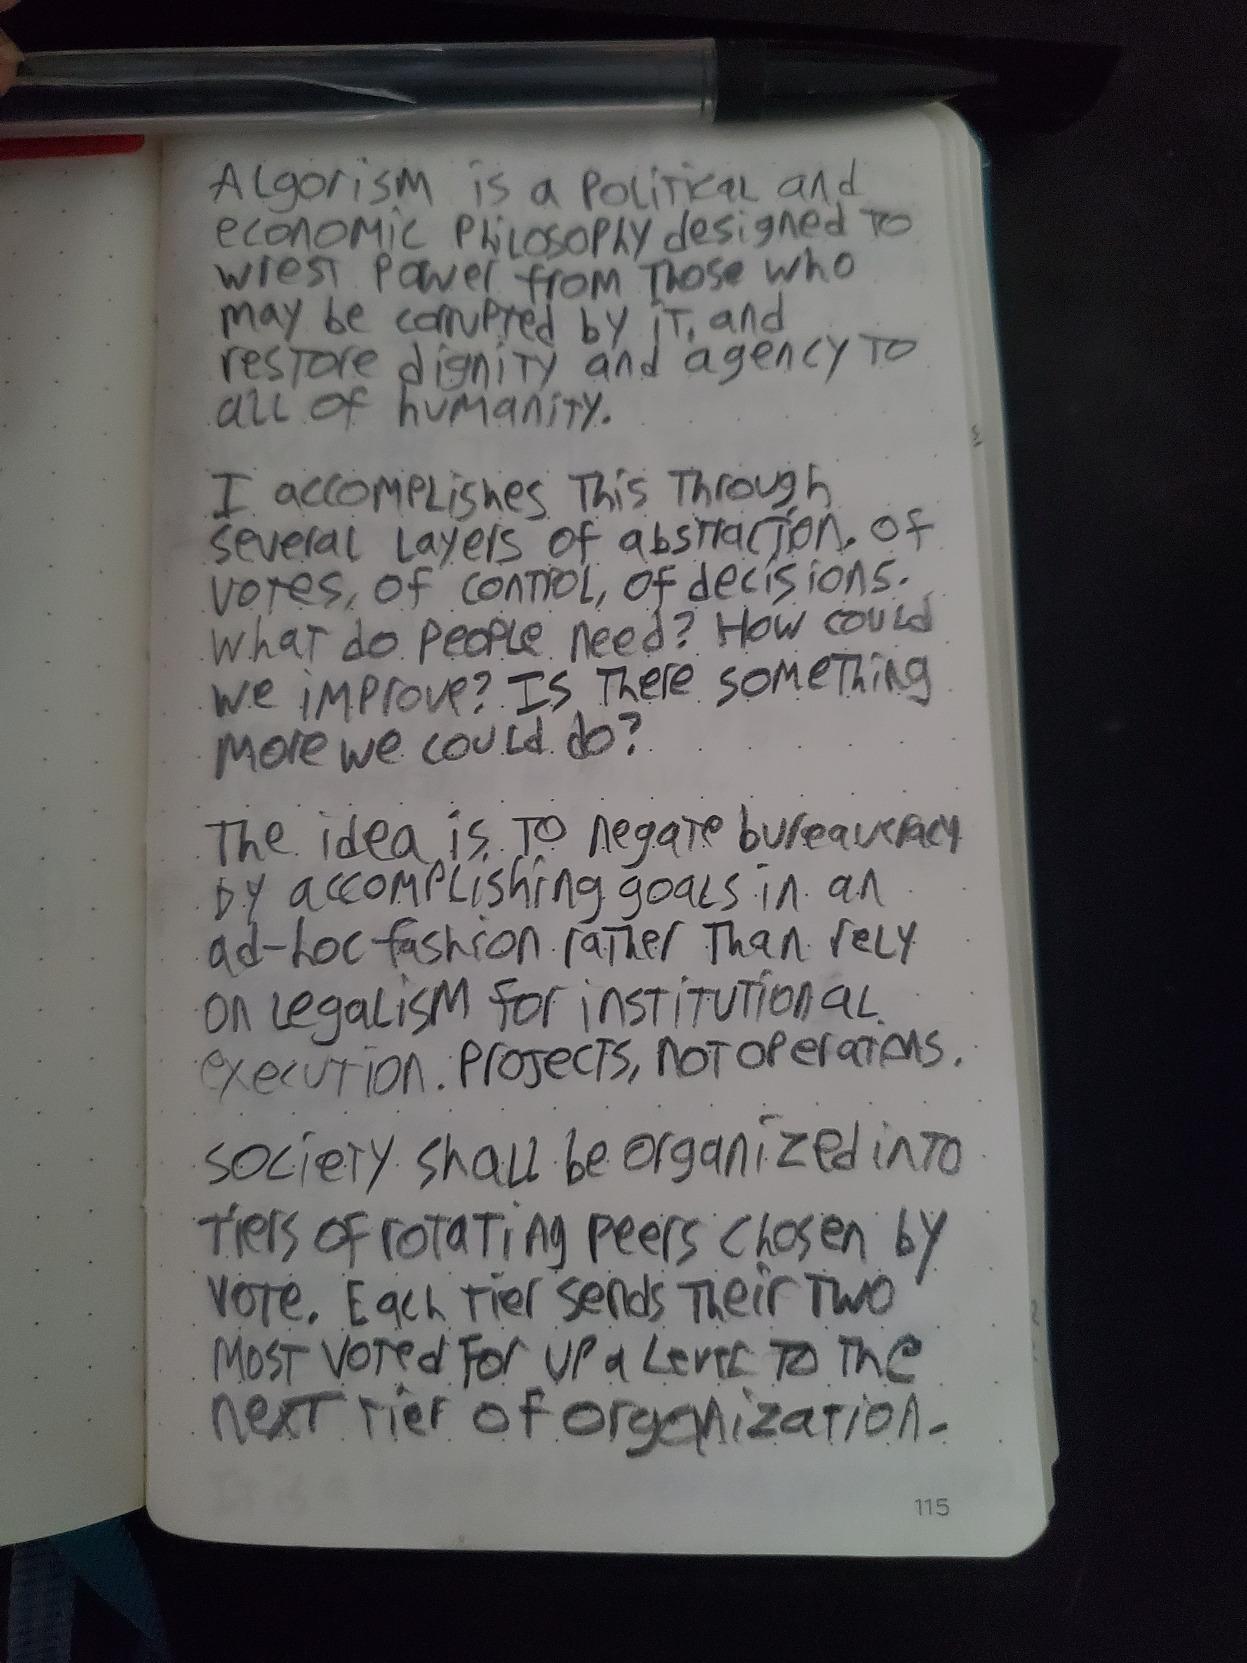 Algorism is a political and
economic philosophy designed to
wrest power from those who
may be corrupted by it, and
restore dignity and agency to
all of humanity.
I accomplishes this through
several layers of abstraction. of
votes, of control, of decisions.
What do people need? How could
we improve? Is there something
more we could do?
The idea is to negate bureaucracy
by accomplishing goals in an
ad-hoc fashion rather than rely
on legalism for institutional
execution. Projects, not operations.
Society shall be organized into
tiers of rotating peers chosen by
vote. Each tier sends their two
most voted for up a level to the
next tier of organization.
115